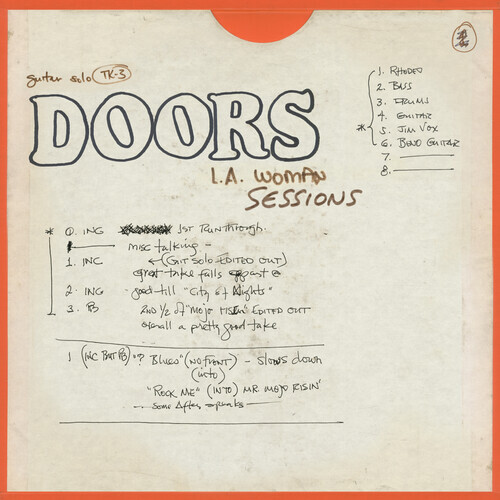 guitar solo TK-3
DOORS
L.A. WOMAN
SESSIONS
1. RHODES
2. BASS
3. DRUMS
4. GUITAR
* 5. JIM VOX
6. BEND GUITAR
7.
8.
* 0. INC 1ST RUNTHROUGH.
misc talking -
1. INC ← (GIT SOLO EDITED OUT)
great take falls apart @
2. INC good till "City of Nights"
3. PB 2ND 1/2 of "MOJO RISEN" EDITED OUT
overall a pretty good take
1 (INC BUT PB) "? Blues" (NO FRONT) - Slows down
(into)
"ROCK ME" (INTO) MR MOJO RISIN'
- Some After